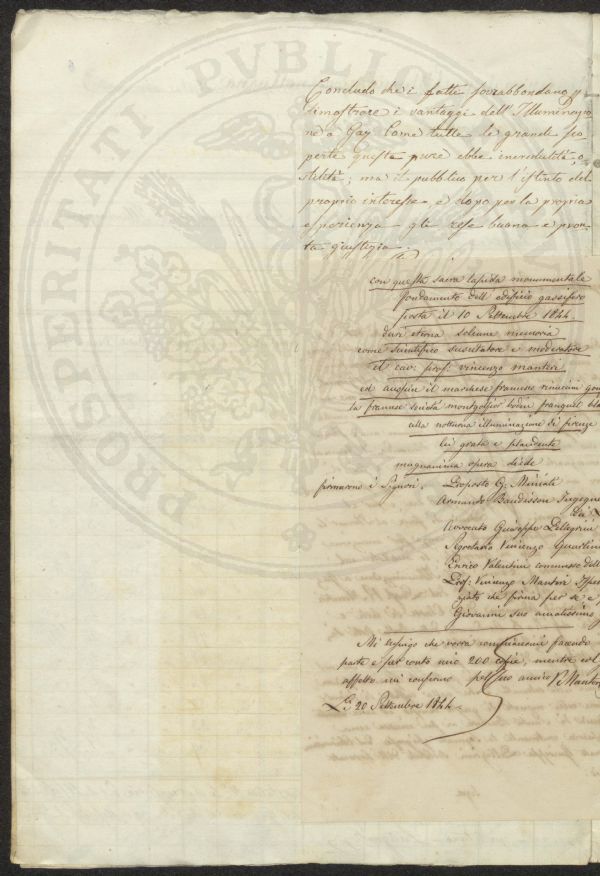 PROSPERITATI PVBLIC
Concludo che i fatti sovrabbondano p
dimostrare i vantaggi dell'Illuminazio
ne a Gaz. Come tutte le grandi sco
perte questa pure ebbe incredulità, o
stilità; ma il pubblico per l'istinto del
proprio interesse, e dopo per la propria
esperienza gli rese buona e pron
ta giustizia.
con questa sacra lapida monumentale
fondamento dell'edificio gassifero
posta il 10 Settembre 1844.
darà eterna solenne memoria
come scientifico suscitatore e moderatore
il cav: prof: vincenzo manteri
ed auspice il marchese francesco
la francese società montgolfier bodin
alla notturna illuminazione di firenze
lei grata e plaudente
magnanima opera diede
firmarono i Signori. Proposto G. Miniati
Armando Baudisson Ingegne
Avvocato Giuseppe Pellegrini
Segretario Vincenzo
Enrico Valentini commesso dell
Prof: Vincenzo Manteri
che firma per se e
Giovanni suo amatissimo
Mi lusingo che vorrà facendo
parte e per conto mio 200 copie, mentre col
affetto mi confermo pel suo amico V. Manteri
Lì 20 Settembre 1844.